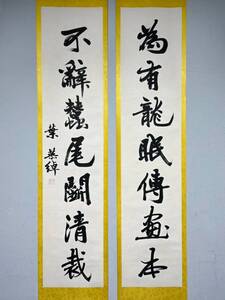 為有龍眠傳畫本
不辭蠆尾鬪清裁
葉恭綽